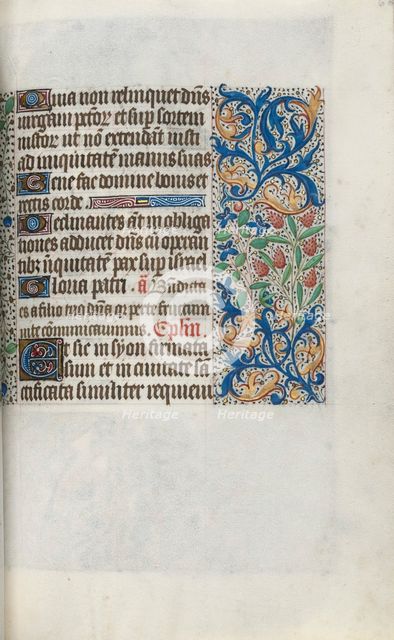 Quia non relinquet dns
virgam pctor et sup sortem
iustor ut no extendant iusti
ad iniquitate manus suas
Bene fac domine bonis et
rectis corde
Declinantes at in obliga
tiones adducet dns cu operan
tibz iniquitate pax sup israel
Gloria patri . a Benedicta
Eplm
Et sic in syon firmata
sum et in civitate sa
ctificata similiter requievi
heritage
Heritage
Heritage